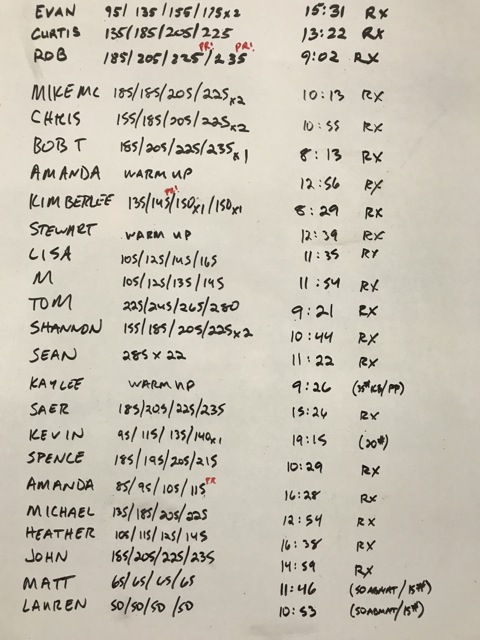 EVAN 95/135/155/175x2 15:31 RX
CURTIS 135/185/205/225 13:22 RX
ROB 185/205/225 PR!/235 PR! 9:02 RX
MIKE MC 185/185/205/225x2 10:13 RX
CHRIS 155/185/205/225x2 10:55 RX
BOB T 185/205/225/235x1 8:13 RX
AMANDA WARM UP 12:56 RX
KIMBERLEE 135/145/150x1/150x1 PR! 8:29 RX
STEWART WARM UP 12:39 RX
LISA 105/125/145/165 11:35 RX
M 105/125/135/145 11:54 RX
TOM 225/245/265/280 9:21 RX
SHANNON 155/185/205/225x2 10:44 RX
SEAN 285 x 22 11:22 RX
KAYLEE WARM UP 9:26 (35# KB/PP)
SAER 185/205/225/235 15:26 RX
KEVIN 95/115/135/140x1 19:15 (20#)
SPENCE 185/195/205/215 10:29 RX
AMANDA 85/95/105/115 PR 16:28 RX
MICHAEL 135/185/205/225 12:54 RX
HEATHER 105/115/125/145 16:38 RX
JOHN 185/205/225/235 14:59 RX
MATT 65/65/65/65 11:46 (50 ABMAT/15#)
LAUREN 50/50/50/50 10:53 (50 ABMAT/15#)